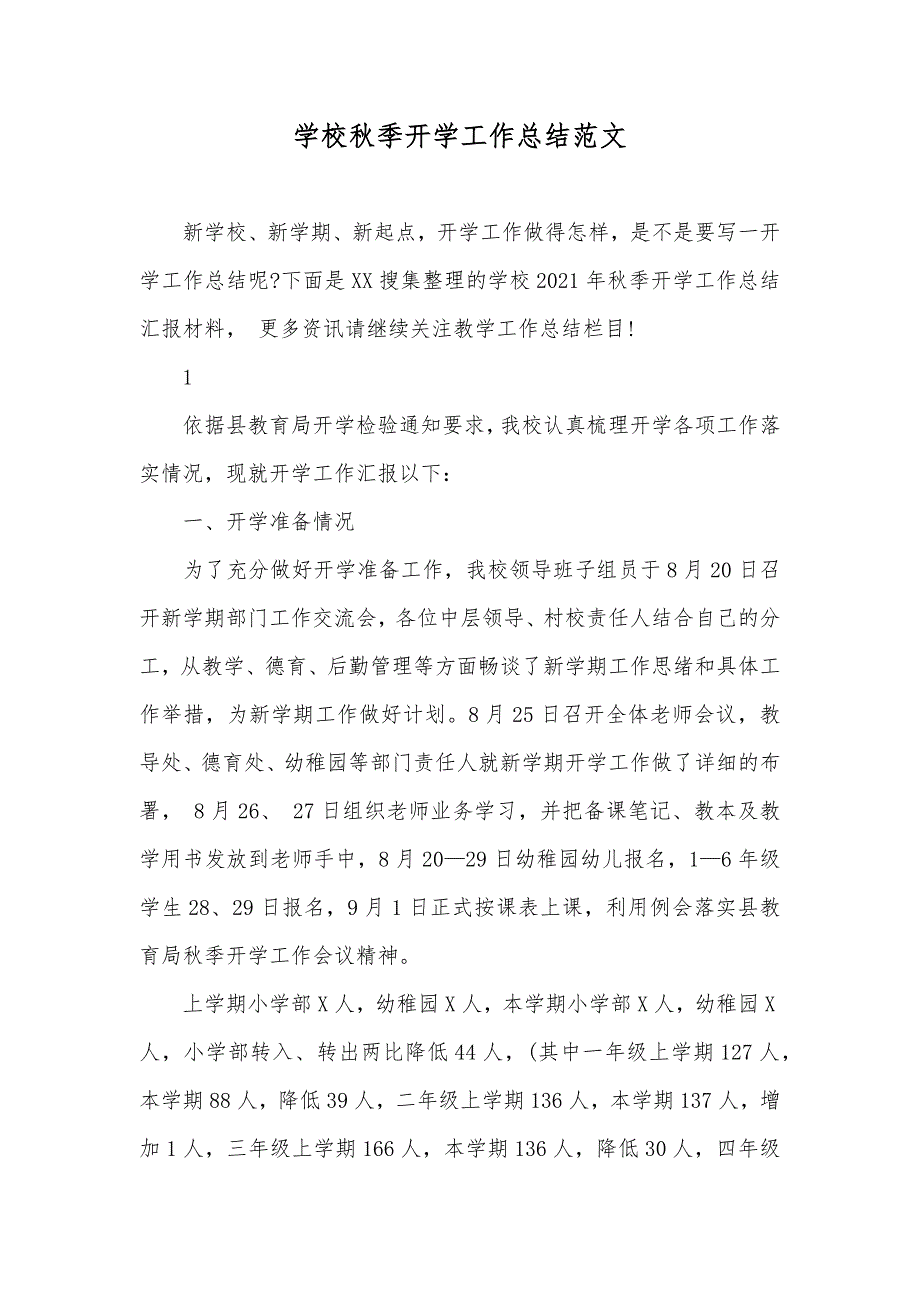 学校秋季开学工作总结范文
新学校、新学期、新起点，开学工作做得怎样，是不是要写一开
学工作总结呢?下面是 XX 搜集整理的学校 2021 年秋季开学工作总结
汇报材料， 更多资讯请继续关注教学工作总结栏目!
1
依据县教育局开学检验通知要求,我校认真梳理开学各项工作落
实情况，现就开学工作汇报以下：
一、开学准备情况
为了充分做好开学准备工作，我校领导班子组员于 8 月 20 日召
开新学期部门工作交流会，各位中层领导、村校责任人结合自己的分
工，从教学、德育、后勤管理等方面畅谈了新学期工作思绪和具体工
作举措，为新学期工作做好计划。8 月 25 日召开全体老师会议，教
导处、德育处、幼稚园等部门责任人就新学期开学工作做了详细的布
署， 8 月 26、 27 日组织老师业务学习，并把备课笔记、教本及教
学用书发放到老师手中，8 月 20—29 日幼稚园幼儿报名，1—6 年级
学生 28、29 日报名，9 月 1 日正式按课表上课，利用例会落实县教
育局秋季开学工作会议精神。
上学期小学部 X 人，幼稚园 X 人，本学期小学部 X 人，幼稚园 X
人，小学部转入、转出两比降低 44 人，(其中一年级上学期 127 人，
本学期 88 人，降低 39 人，二年级上学期 136 人，本学期 137 人，增
加 1 人，三年级上学期 166 人，本学期 136 人，降低 30 人，四年级